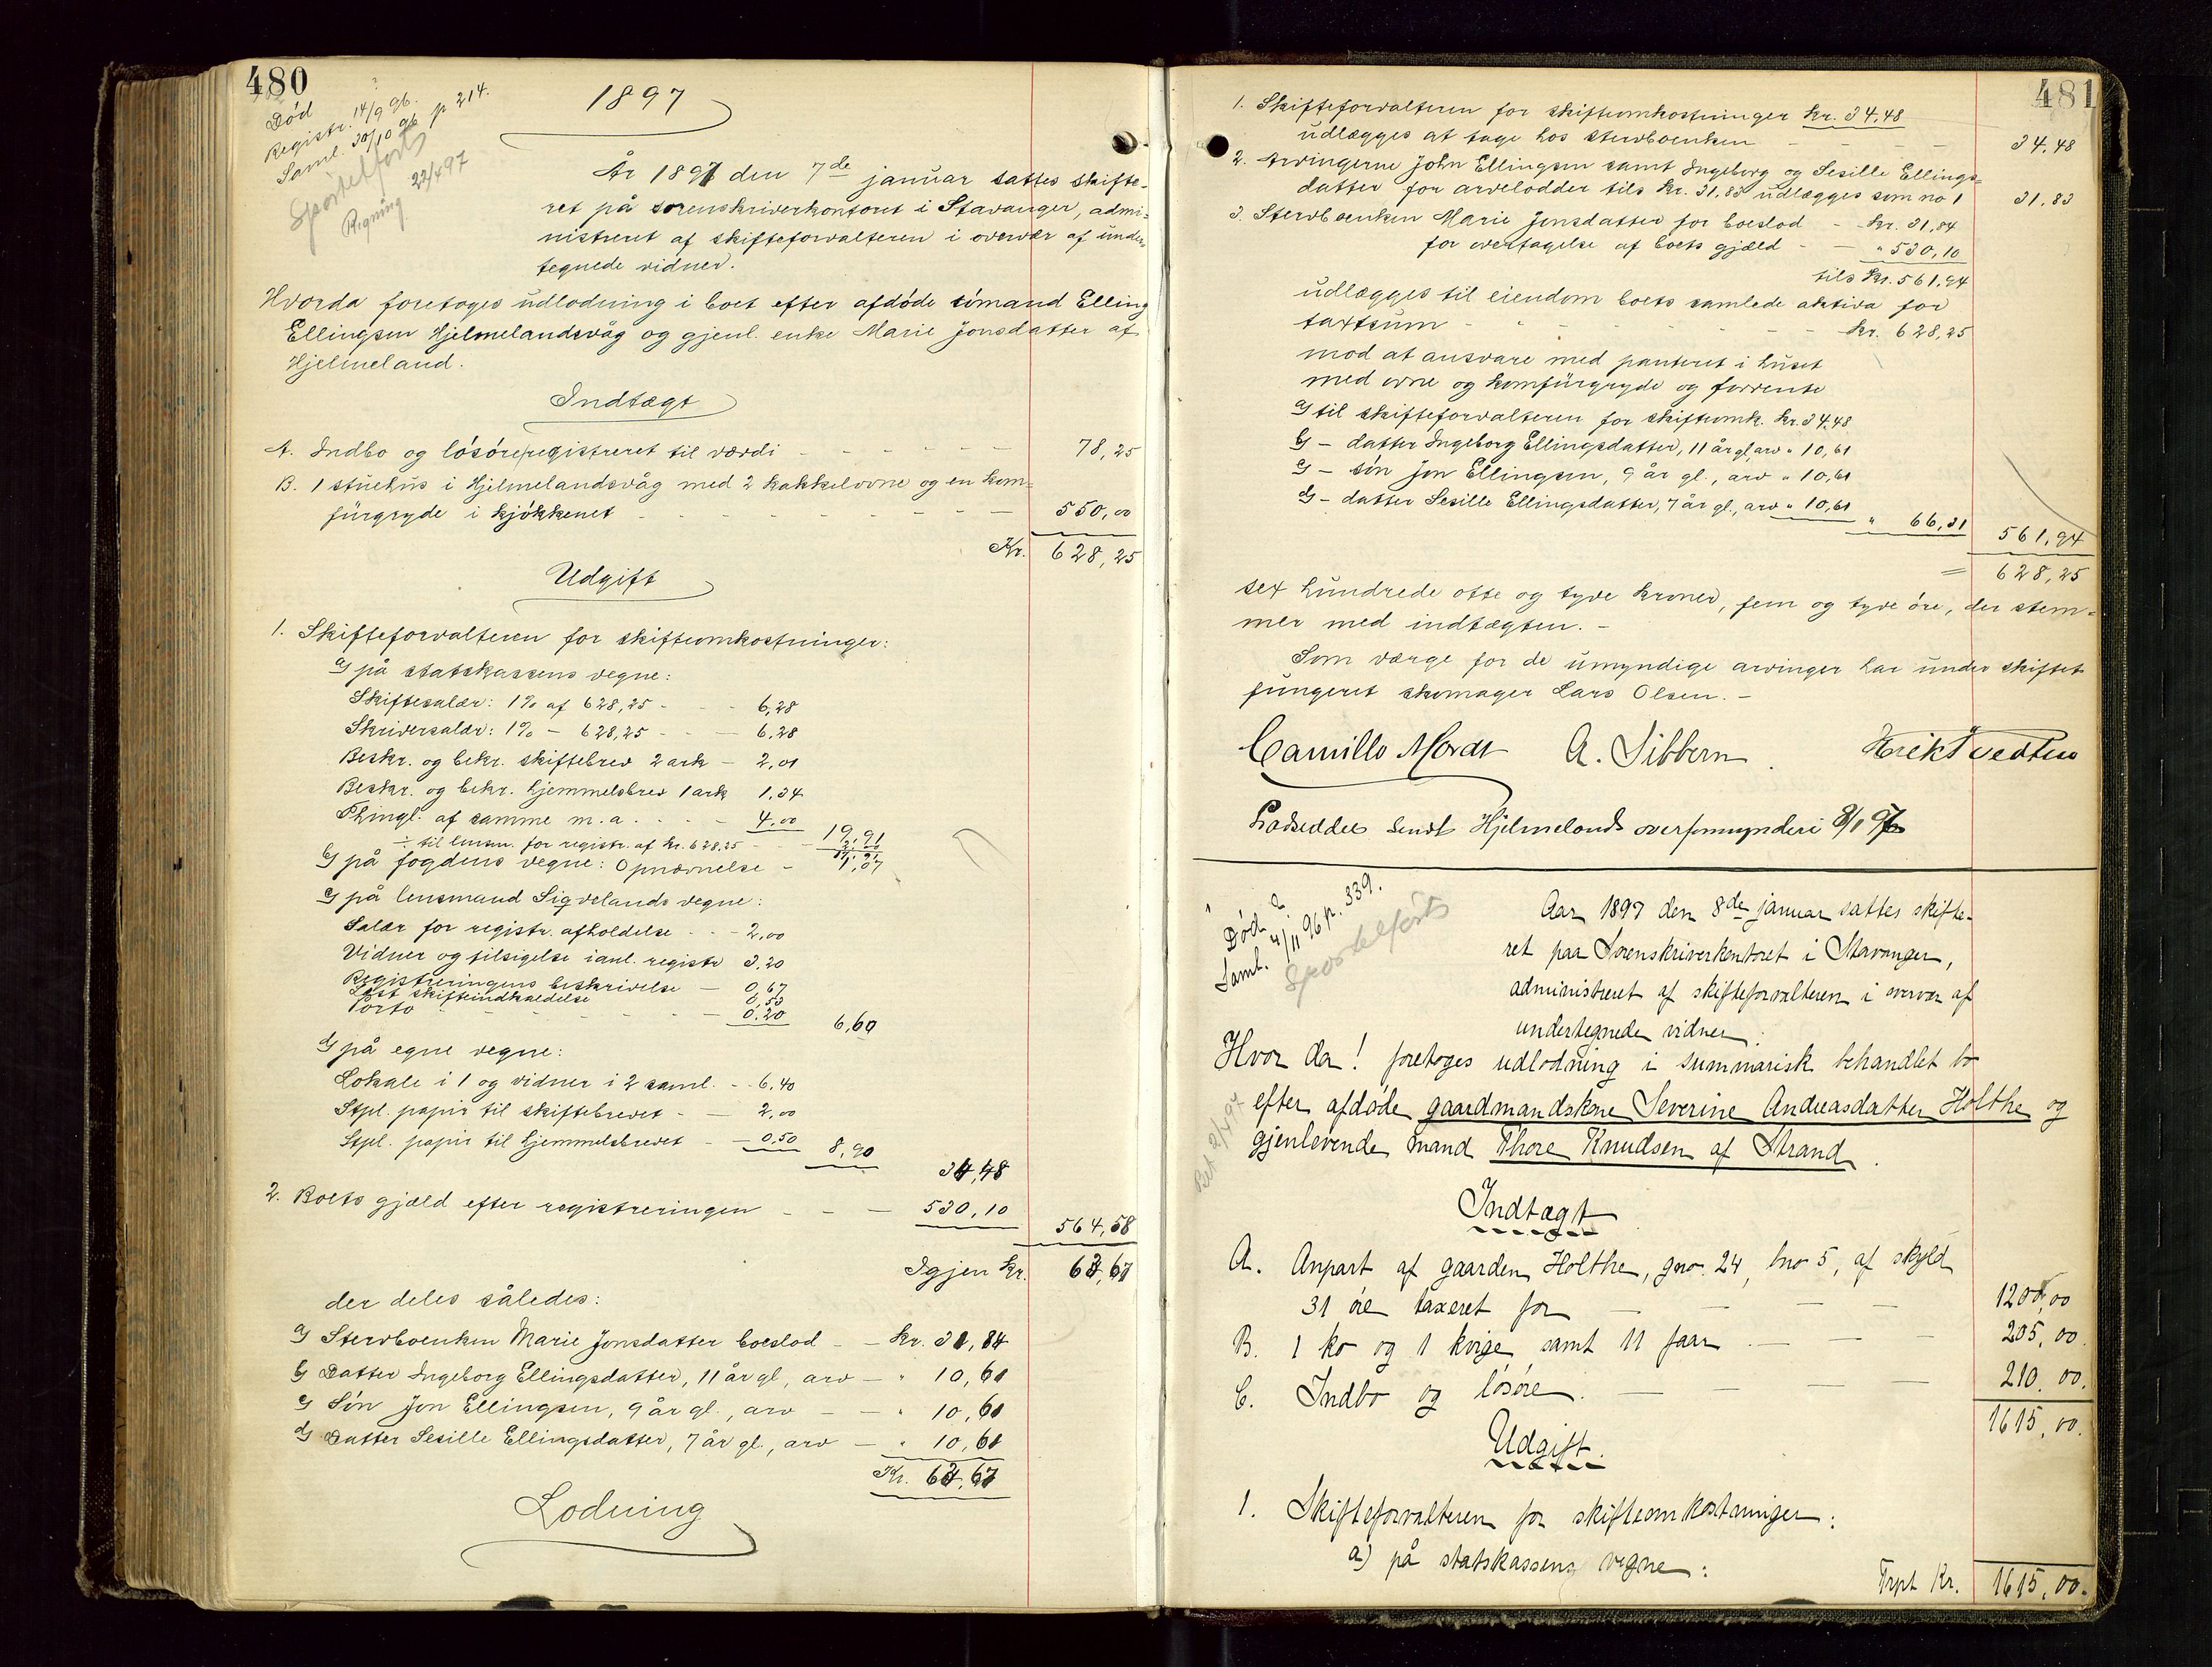 480
Død ?
Registr. 14/9 96.
Saml. 30/10 96 p 214.
Sportelført
Regning 22/4 97
1897
År 1897 den 7de januar sattes skifte-
ret på sorenskriverkontoret i Stavanger, admi-
nistreret af skifteforvalteren i overvær af under-
tegnede vidner.
Hvorda foretoges udlodning i boet efter afdøde sømand Elling
Ellingsen Hjelmelandsvåg og gjenl. enke Marie Jonsdatter af
Hjelmeland.
Indtægt
A. Indbo og løsøre registreret til værdi - - - - - 78,25
B. 1 stuehus i Hjelmelandsvåg med 2 kakkelovne og en kom-
fürgryde i kjøkkenet - - - - - - - 550,00
Kr. 628,25
Udgift
1. Skifteforvalteren for skifteomkostninger:
a) på statskassens vegne:
Skiftesalær: 1% af 628,25 - - - 6,28
Skriversalær: 1% - 628,25 - - - 6,28
Beskr. og bekr. skiftebrev 2 ark - 2,01
Beskr. og bekr. hjemmelsbrev 1 ark 1,34
Thingl. af samme m. a. - - - 4,00
19,91
÷ til lensm. for registr. af kr. 628,25 - - 2,00
17,91
b) på fogdens vegne: Opnævnelse - 1,07
c) på lensmand Sigvelands vegne:
Salær for registr. afholdelse - - - 2,00
Vidner og tilsigelse i anl. registr 3,20
Registreringens beskrivelse - 0,67
Læst skifteindkaldelse 0,53
Porto - - - - - 0,20 6,60
d) på egne vegne:
Lokale i 1 og vidner i 2 saml. - - 6,40
Stpl. papir til skiftebrevet - - 2,00
Stpl. papir til hjemmelsbrevet - - 0,50 8,90
34,48
2. Boets gjæld efter registreringen - - - 530,10
564,58
Igjen Kr. 63,67
der deles således:
a) Stervboenken Marie Jonsdatter boeslod - - Kr. 31,84
b) Datter Ingeborg Ellingsdatter, 11 år gl, arv - " 10,61
c) Søn Jon Ellingsen, 9 år gl., arv - - " 10,61
d) Datter Sesille Ellingsdatter, 7 år gl., arv - " 10,61
Kr. 63,67
Lodning
481
1. Skifteforvalteren for skifteomkostninger Kr. 34,48
udlægges at tage hos stervboenken - - - - 34,48
2. Arvingerne John Ellingsen samt Ingeborg og Sesille Ellings-
datter for arvelodder tils Kr. 31,83 udlægges som no 1 31,83
3. Stervboenken Marie Jonsdatter for boeslod - Kr. 31,84
for overtagelse af boets gjæld - - " 530,10
tils Kr. 561,94
udlægges til eiendom boets samlede aktiva for
taxtsum - - - - - - - Kr. 628,25
mod at ansvare med panteret i huset
med ovne og komfürgryde og forrente
a) til skifteforvalteren for skifteomk. Kr. 34,48
b) - datter Ingeborg Ellingsdatter, 11 år gl, arv " 10,61
c) - søn Jon Ellingsen, 9 år gl., arv " 10,61
d) - datter Sesille Ellingsdatter, 7 år gl., arv " 10,61
" 66,31 561,94
= 628,25
sex hundrede otte og tyve kroner, fem og tyve øre, der stem-
mer med indtægten. -
Som værge for de umyndige arvinger har under skiftet
fungeret skomager Lars Olsen. -
Camillo Mordt A. Sibbern
Lodseddel sendt Hjelmelands overformynderi 8/1 97
Død ?
Saml. 4/11 96 p. 339.
Sportelført
Aar 1897 den 8de januar sattes skifte-
ret paa Sorenskriverkontoret i Stavanger,
administreret af skifteforvalteren i overvær af
undertegnede vidner:
Hvor da! foretoges udlodning i summarisk behandlet bo
efter afdøde gaardmandskone Severine Andreasdatter Holthe og
gjenlevende mand Thore Knudsen af Strand.
Bet 2/4 97
Indtægt
A. Anpart af gaarden Holthe, gno. 24, bno 5, af skyld
31 øre taxeret for - - - - 1200,00
B. 1 ko og 1 kvige samt 11 faar - - - 205,00.
C. Indbo og løsøre. - - - - 210,00.
1615,00.
Udgift.
1. Skifteforvalteren for skifteomkostninger:
a) på statskassens vegne:
Trpt Kr. 1615,00.